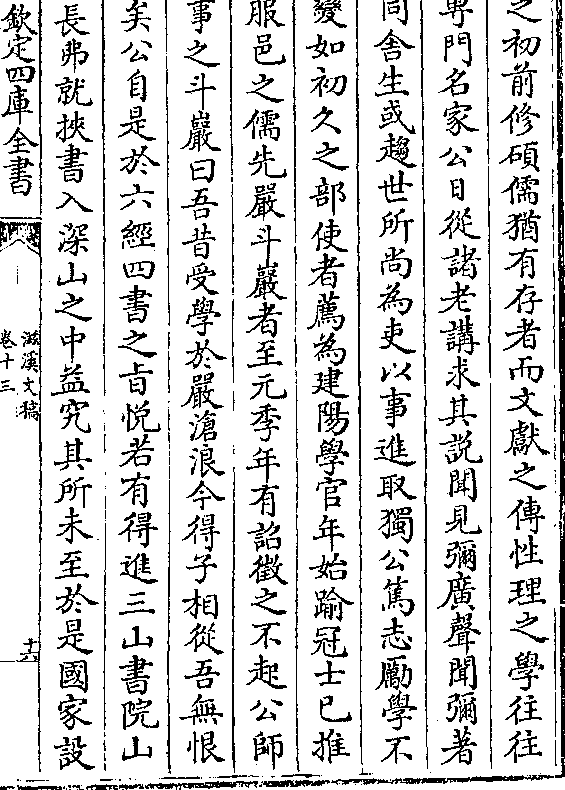 之初前修碩儒猶有存者而文獻之傳性理之學往往
專門名家公日從諸老講求其説聞見彌廣聲聞彌著
同舍生或趨世所尚為吏以事進取獨公篤志勵學不
變如初久之部使者薦為建陽學官年始踰冠士已推
服邑之儒先嚴斗巖者至元季年有詔徵之不起公師
事之斗巖曰吾昔受學於嚴滄浪今得子相從吾無恨
矣公自是於六經四書之㫖悦若有得進三山書院山
長弗就挾書入深山之中益究其所未至於是國家設
欽定四庫全書
滋溪文稿
卷十三
十六